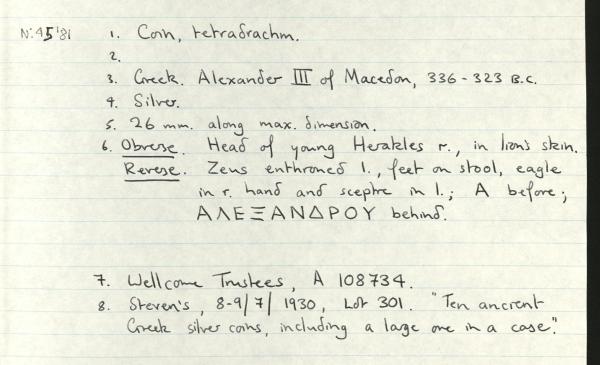 N: 45'81 1. Coin, tetradrachm.
2.
3. Greek. Alexander III of Macedon, 336-323 B.C.
4. Silver.
5. 26 mm. along max. dimension.
6. Obverse. Head of young Herakles r., in lion's skin.
Reverse. Zeus enthroned l., feet on stool, eagle
in r. hand and sceptre in l.; A before;
ΑΛΕΞΑΝΔΡΟΥ behind.
7. Wellcome Trustees, A 108734.
8. Steven's, 8-9/7/1930, Lot 301. "Ten ancient
Greek silver coins, including a large one in a case".